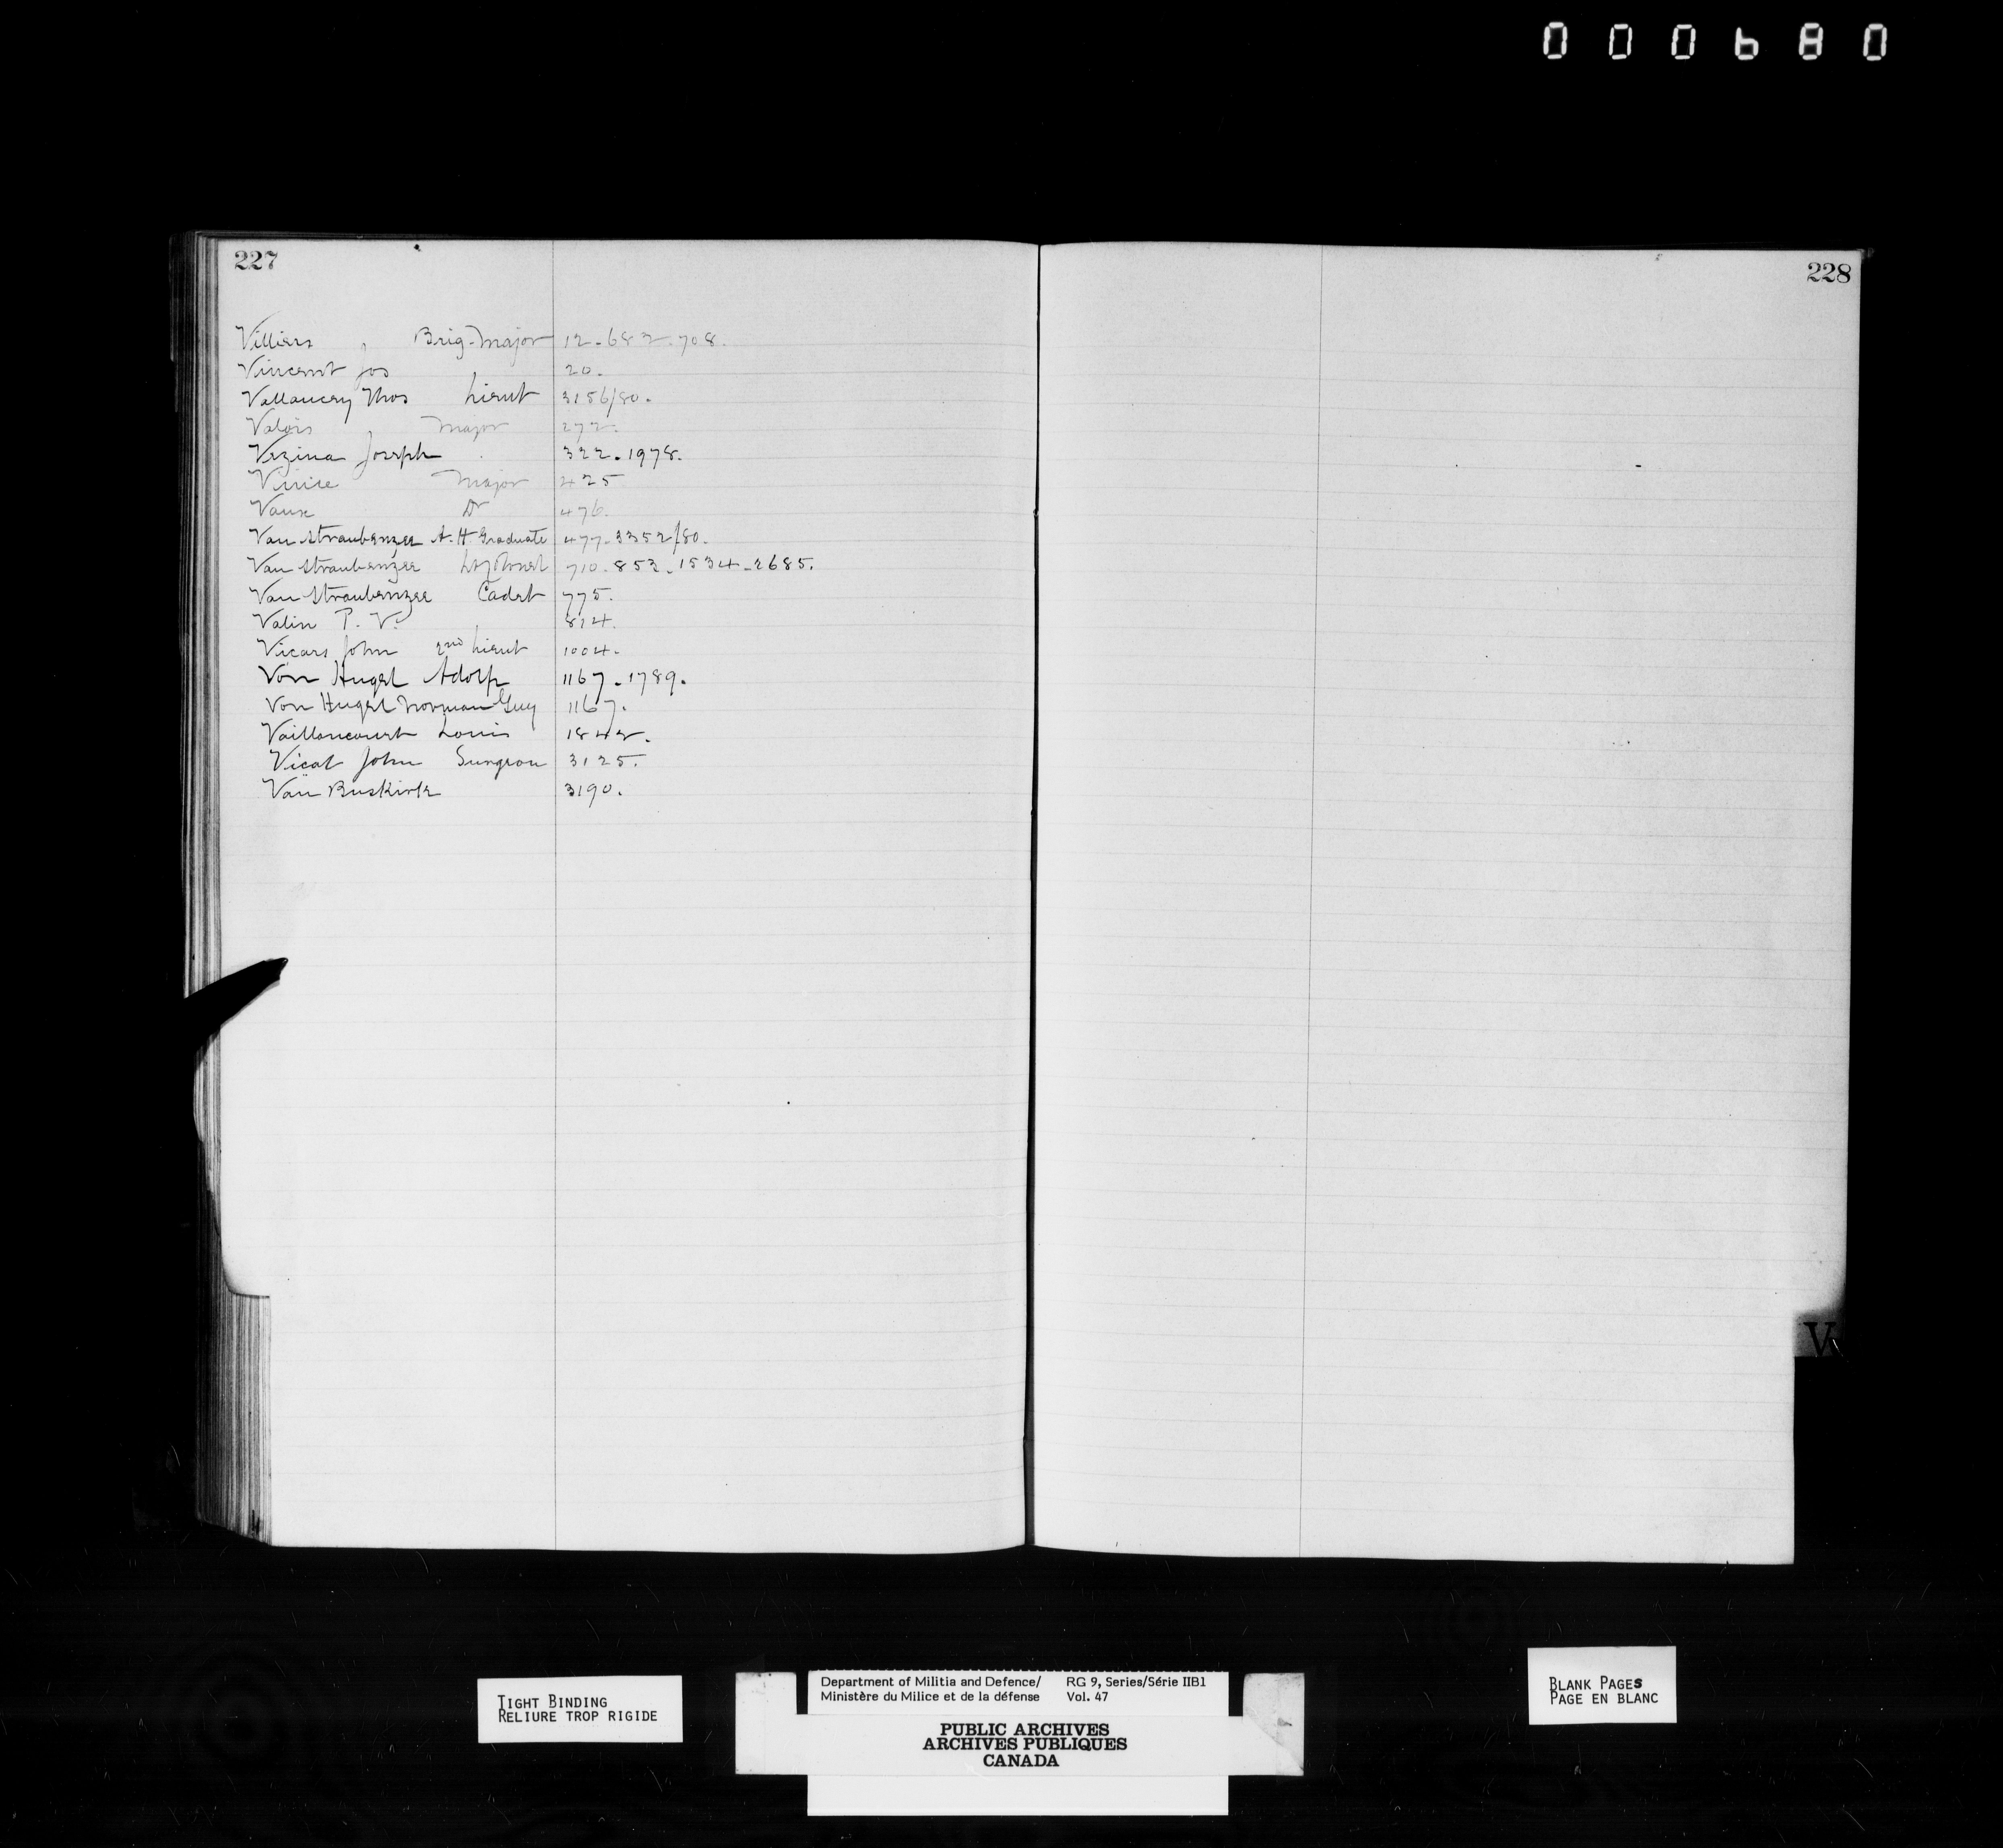 000680
227
228
Villiers Brig-Major 12-682-708.
Vincent Jos 20.
Vallancey Thos Lieut 3156/80.
Valois Major 272.
Vezina Joseph 322-1978.
Major 425
Vaux Dr 476.
Van Straubenzee A.H. Graduate 477-3352/80.
Van Straubenzee Lt Colonel 710-853-1534-2685.
Van Straubenzee Cadet 775.
Valin P. V. 814.
Vicars John 2nd Lieut 1004.
Von Hugel Adolf 1167-1789.
Von Hugel Norman Guy 1167.
Vaillancourt Louis 1842.
Vicat John Surgeon 3125.
Van Buskirk 3190.
V
TIGHT BINDING
RELIURE TROP RIGIDE
Department of Militia and Defence/ RG 9, Series/Série IIB1
Ministère du Milice et de la défense Vol. 47
PUBLIC ARCHIVES
ARCHIVES PUBLIQUES
CANADA
BLANK PAGES
PAGE EN BLANC